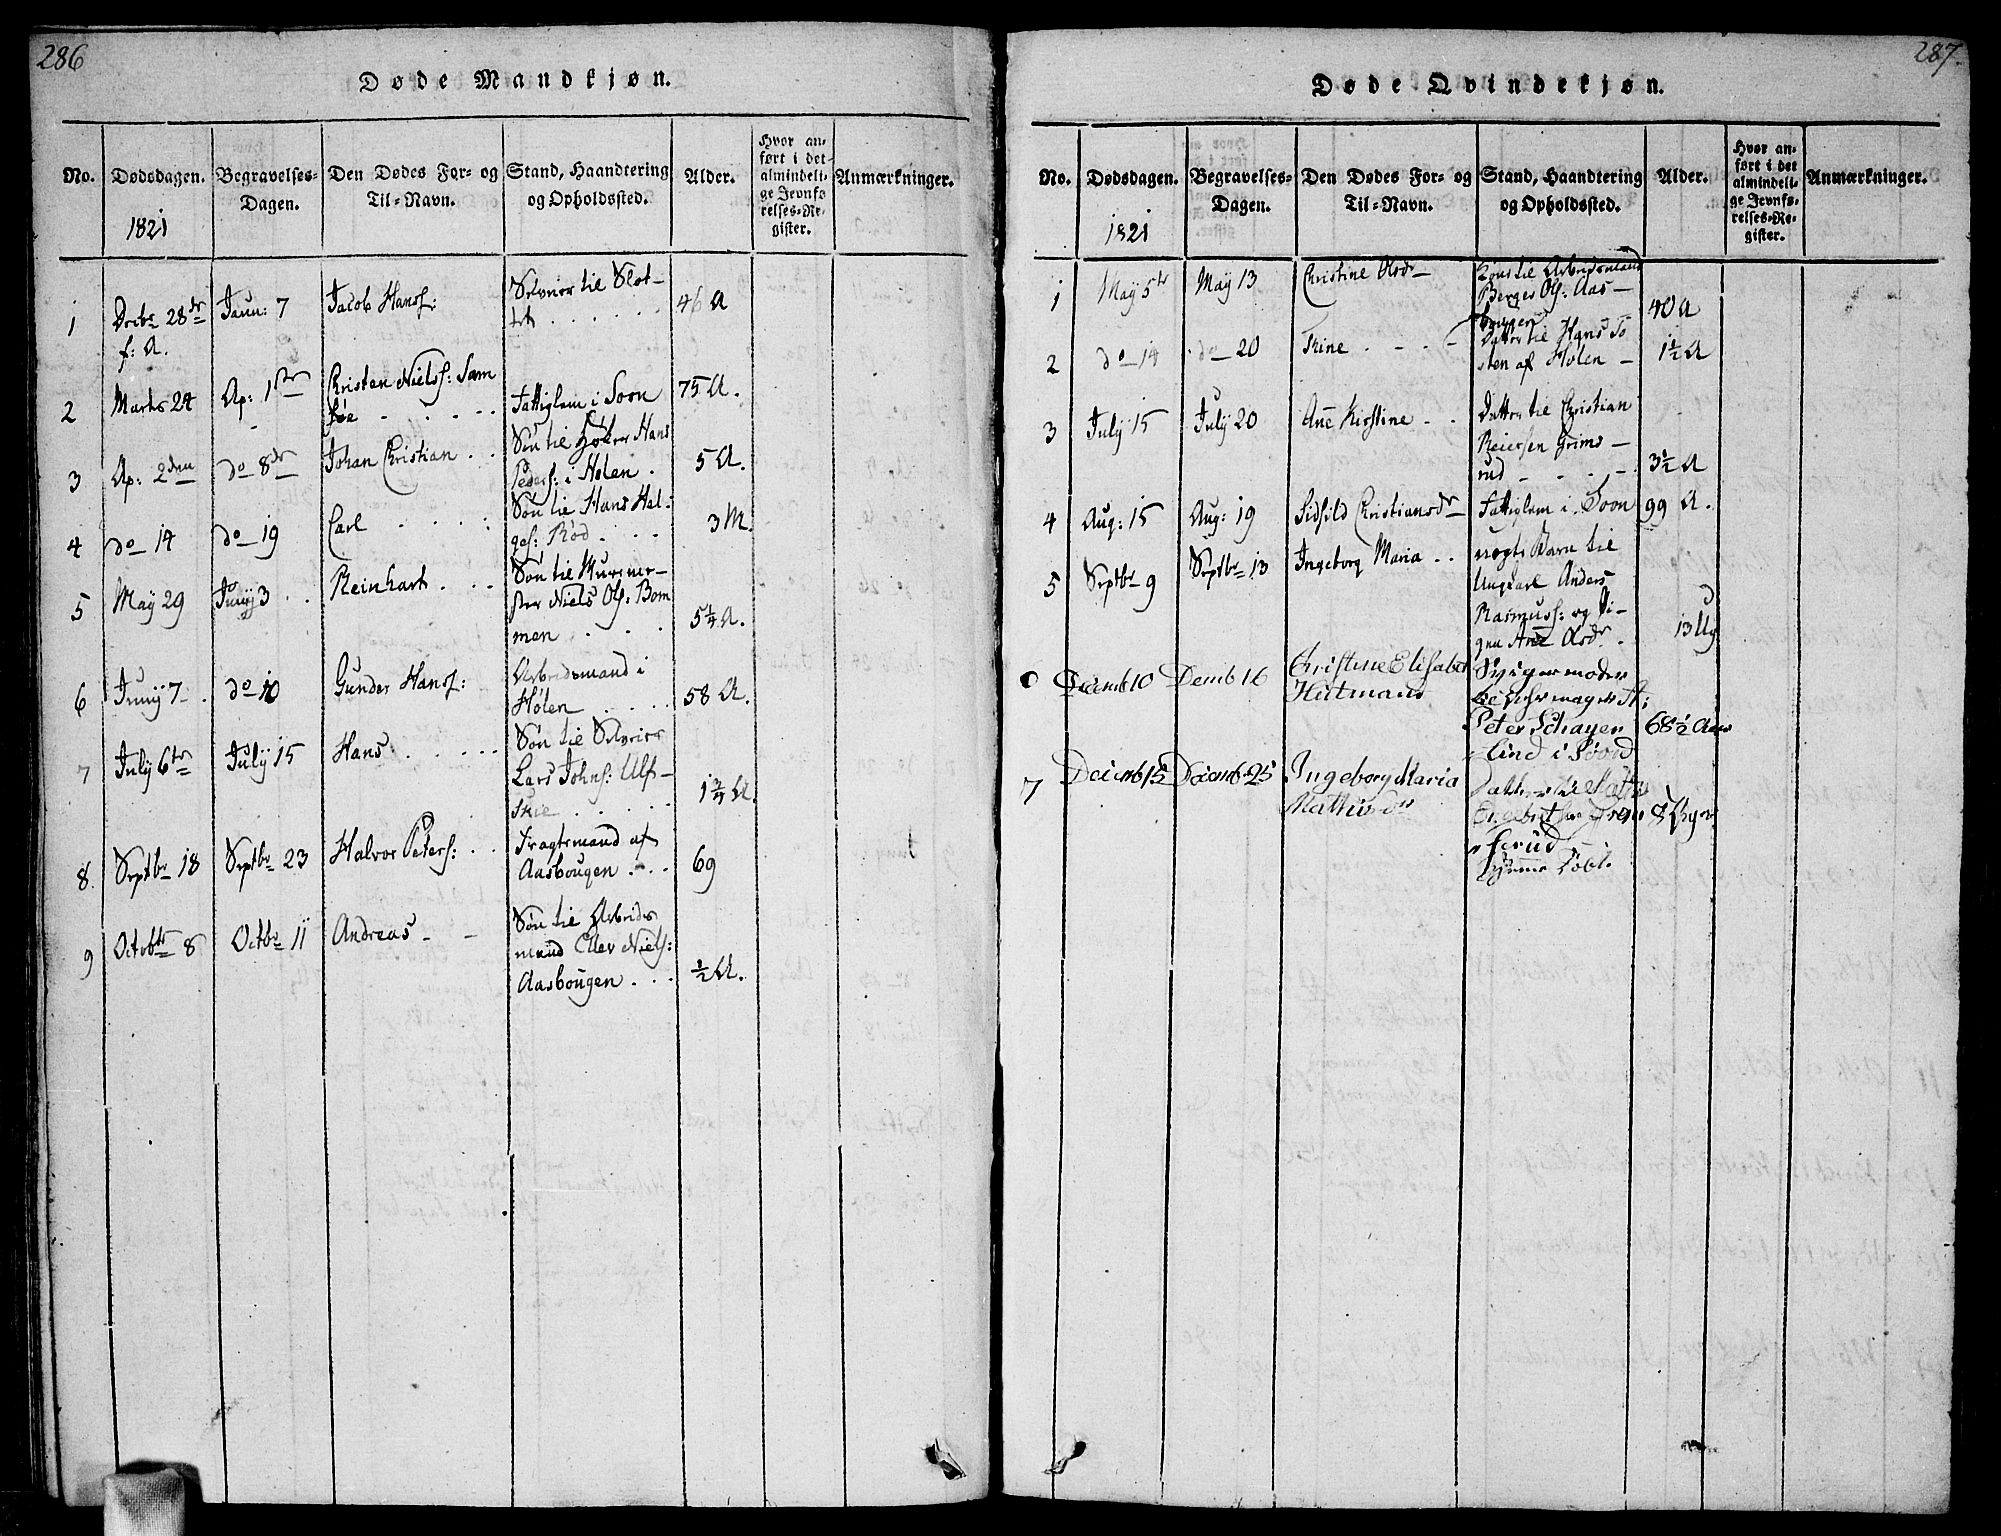 286
Døde Mandkjøn.
No.
Dødsdagen.
1821
Begravelses-
Dagen.
Den Dødes For- og
Til-Navn.
Stand, Haandtering
og Opholdssted.
Alder.
Hvor an-
ført i det
almindeli-
ge Jevnfø-
relses-Re-
gister.
Anmærkninger.
1 Decbr 28de Janu: 7 Jacob Hansf: til Slot- 46 A
f: A.
2 Marts 24 Ap: 1ster Christen Nielsf: Sam Fattiglem i Soon 75 A.
søe
3 Ap: 2den do 8de Johan Christian Søn til Høker Hans
Pedersf: i Holen 5 A.
4 do 14 do 19 Carl Søn til Hans Hal-
gesf: Rød 3 M.
5 May 29 Junij 3 Reinhart Søn til Murmer-
ster Niels Olsf: Bom
men 5¼ A.
6 Junij 7 do 10 Gunder Hansf: Arbeidsmand i
Hölen 58 A.
7 July 6te July 15 Hans Søn til
Lars Johnsf: Ulf-
skie 1¾ A.
8. Septbr 18 Septbr 23 Halvor Petersf: Fragtemand af
Aasbougen 69
9 Octobr 8 Octbr 11 Andreas Søn til Arbeids
mand Eller Nielsf:
Aasbougen ½ A.
287.
Døde Qvindekjøn.
No.
Dødsdagen.
1821
Begravelses-
Dagen.
Den Dødes For- og
Til-Navn.
Stand, Haandtering
og Opholdssted.
Alder.
Hvor an-
ført i det
almindeli-
ge Jevnfø-
relses-Re-
gister.
Anmærkninger.
1 May 5te May 13 Christine Olsdr Kone til Arbeidsmand
Berger Olsf: Aas-
bougen 40 A
2 do 14 do 20 Trine Datter til Hans To
sten af Holen 1½ A
3 July 15 July 20 Ane Kirstine Datter til Christian
Reiersen Grims-
rud 3½ A
4 Aug: 15 Aug: 19 Sidsild Christiansdr Fattiglem i Soon 99 A.
5 Septbr 9 Septbr 13 Ingeborg Maria uægte Barn til
Ungkarl Anders
Rasmusf: og Pi-
gen Ane Olsdr 13 Ug
6 Decemb 10 Decemb 16 Christine Elisabet Svigermoder
Hutmans til Uhrmager
Peter Schøyer 68½ Aar
Lind i
7 Decemb 15 Decemb 25 Ingeborg Maria Datter til
Mathisdr 8 Uger
Hjemme Døbt.